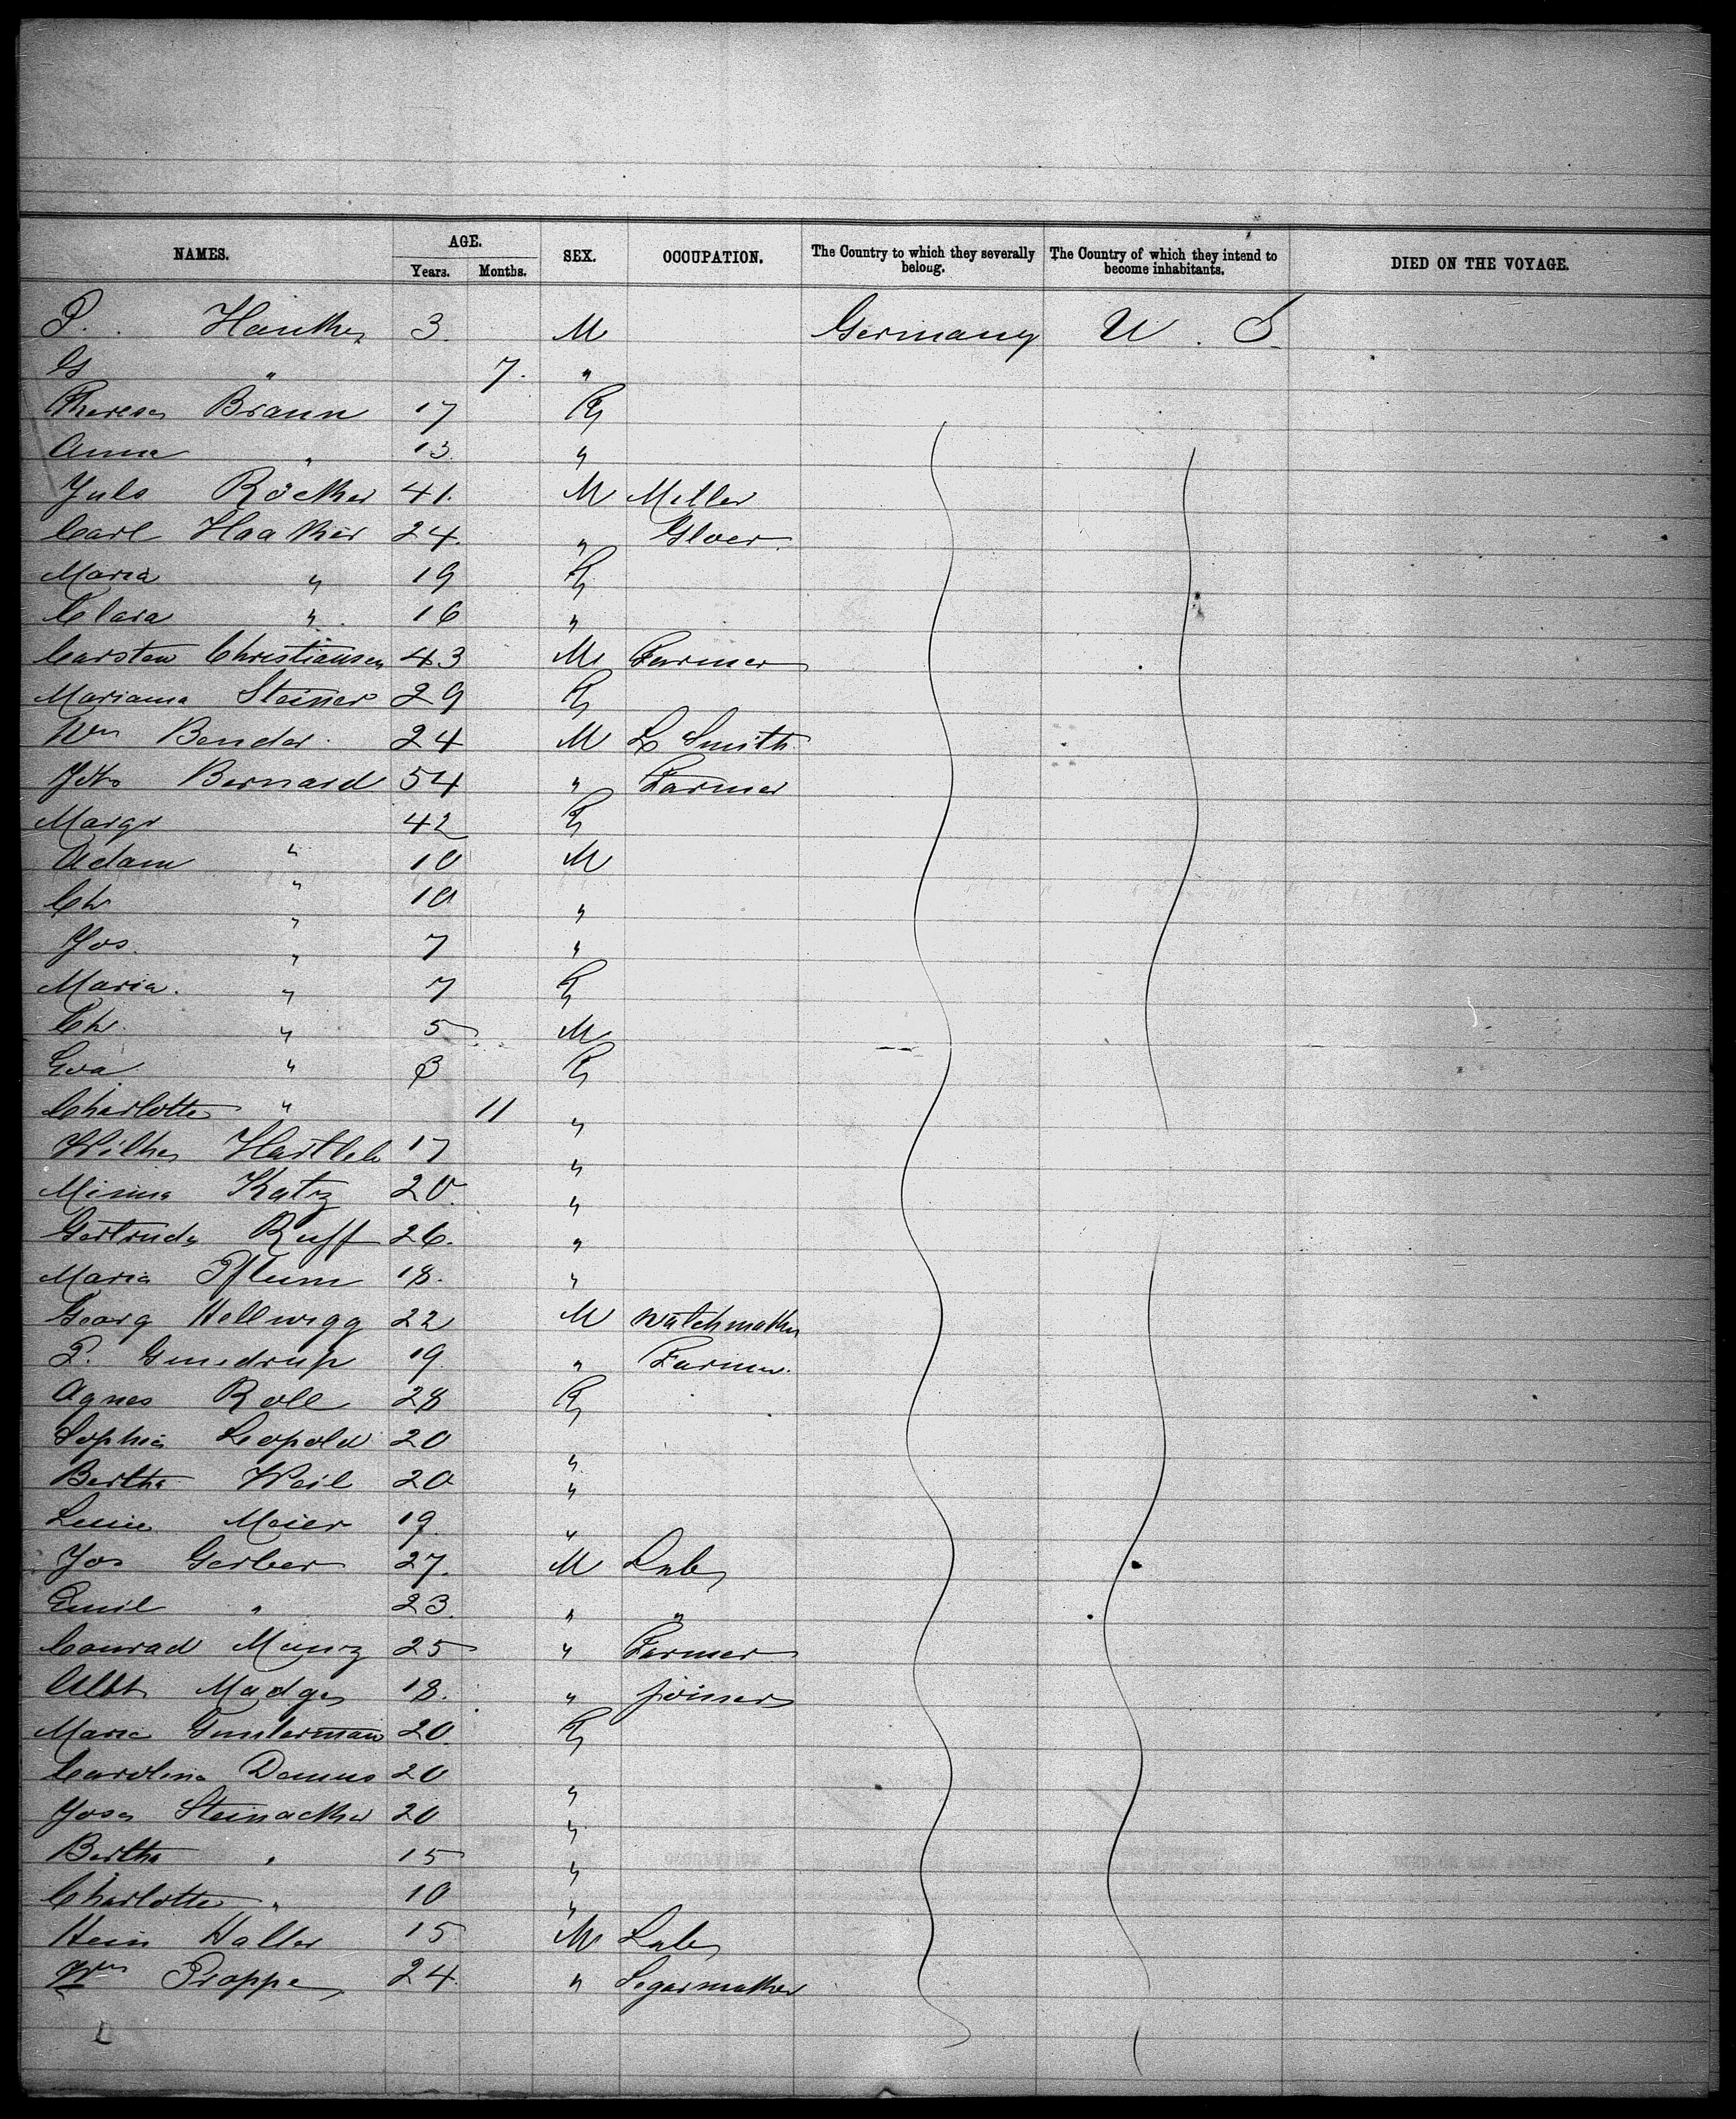 NAMES. AGE. SEX. OCCUPATION. The Country to which they severally belong. The Country of which they intend to become inhabitants. DIED ON THE VOYAGE.
Years. Months.
P. 3. M Germany U. S.
G " 7. "
Theresa Braun 17 F
Anna " 13 "
Juls Röcker 41. M Miller
Carl Haaker 24. "
Maria " 19 F
Clara " 16 "
Carsten Christiansen 43 M Farmer
Marianna Steiner 29 F
Wm Bender 24 M L Smith
Bernard 54 " Farmer
Margr 42 F
Adam " 10 M
Ch " 10 "
Jos. " 7 "
Maria. " 7 F
Ch. " 5 M
Eva " 3 F
Charlotte " 11 "
Hartleb 17 "
Minna Katz 20. "
Gertrude Ruff 26. "
Maria Pflum 18. "
Georg Hellwigg 22 M Watchmaker
P. 19 " Farmer.
Agnes Roll 28 F
Sophia Leopold 20 "
Bertha Weil 20 "
Meier 19. "
Jos Gerber 27. M Lab
Emil " 23. " "
Conrad Munz 25 " Farmer
Albt Madge 18. " joiner
Maria Gunterman 20. F
Carolina Damus 20 "
Josa Steinacker 20 "
Bertha " 15 "
Charlotte " 10 "
Hein Haller 15 M Lab
Wm Proppe 24. " Segarmaker